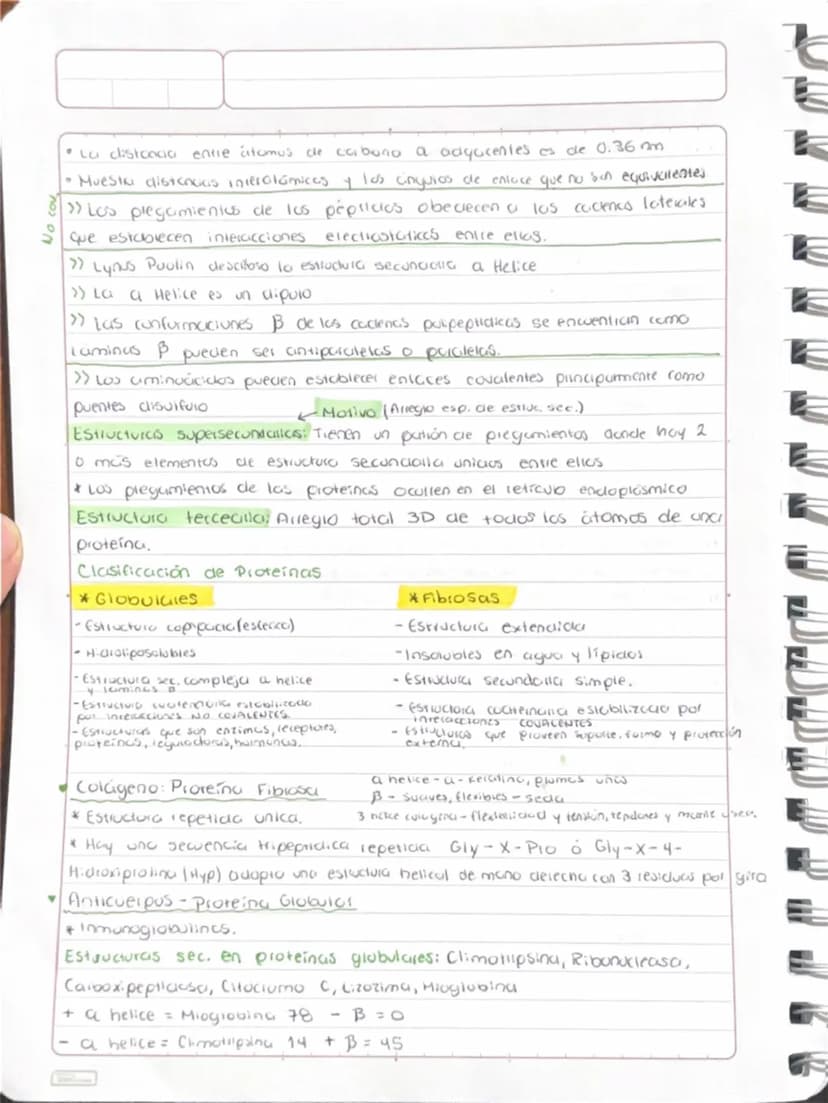 • La distancia entre átomos de carbono α adyacentes es de 0.36 nm
• Muestra distancias interatómicas y los ángulos de enlace que no son equivalentes
No cov.
>> Los plegamientos de los péptidos obedecen a las cadenas laterales
que establecen interacciones electrostáticas entre ellas.
>> Lynus Paulin describio la estructura secundaria α Helice
>> La α Helice es un dipolo
>> Las conformaciones β de las cadenas polipeptidicas se encuentran como
laminas β pueden ser antiparalelas o paralelas.
>> Los aminoácidos pueden establecer enlaces covalentes principalmente como
puentes disulfuro
Motivo (Arreglo esp. de estruc. sec.)
Estructuras supersecundarias: Tienen un patrón de plegamientos donde hay 2
o más elementos de estructura secundaria unidos entre ellos
* Los plegamientos de las proteínas ocurren en el retículo endoplásmico
Estructura terceciria: Arreglo total 3D de todos los átomos de una
proteína.
Clasificación de Proteínas
* Globulares
* Fibrosas
- Estructura compacta (esférica)
- Estructura extendida
- Hidroliposolubles
- Insolubles en agua y lípidos
- Estructura sec. compleja α helice
y laminas β
- Estructura secundaria simple.
- Estructura cuaternaria estabilizada
por interacciones NO COVALENTES.
- Estructura cuaternaria estabilizada por
interacciones COVALENTES
- Estructuras que son enzimas, receptores,
proteínas, reguladoras, hormonas.
- Estructuras que proveen soporte, forma y protección
externa.
Colágeno: Proteína Fibrosa
α helice - α-keratina, plumas uñas
β - suaves, flexibles - seda
* Estructura repetida unica.
3 helice colágena - flexibilidad y tensión, tendones y
* Hay una secuencia tripeptidica repetida Gly - X - Pro ó Gly-X-4-
Hidroxiprolina (Hyp) adopta una estructura helical de mano derecha con 3 residuos por giro
Anticuerpos - Proteína Globular
* Inmunoglobulinas.
Estructuras sec. en proteínas globulares: Cimotripsina, Ribonucleasa,
Carboxipeptidasa, Citocromo C, Lizozima, Mioglobina
+ α helice = Mioglobina 78 - β = 0
- α helice = Cimotripsina 14 + β = 45